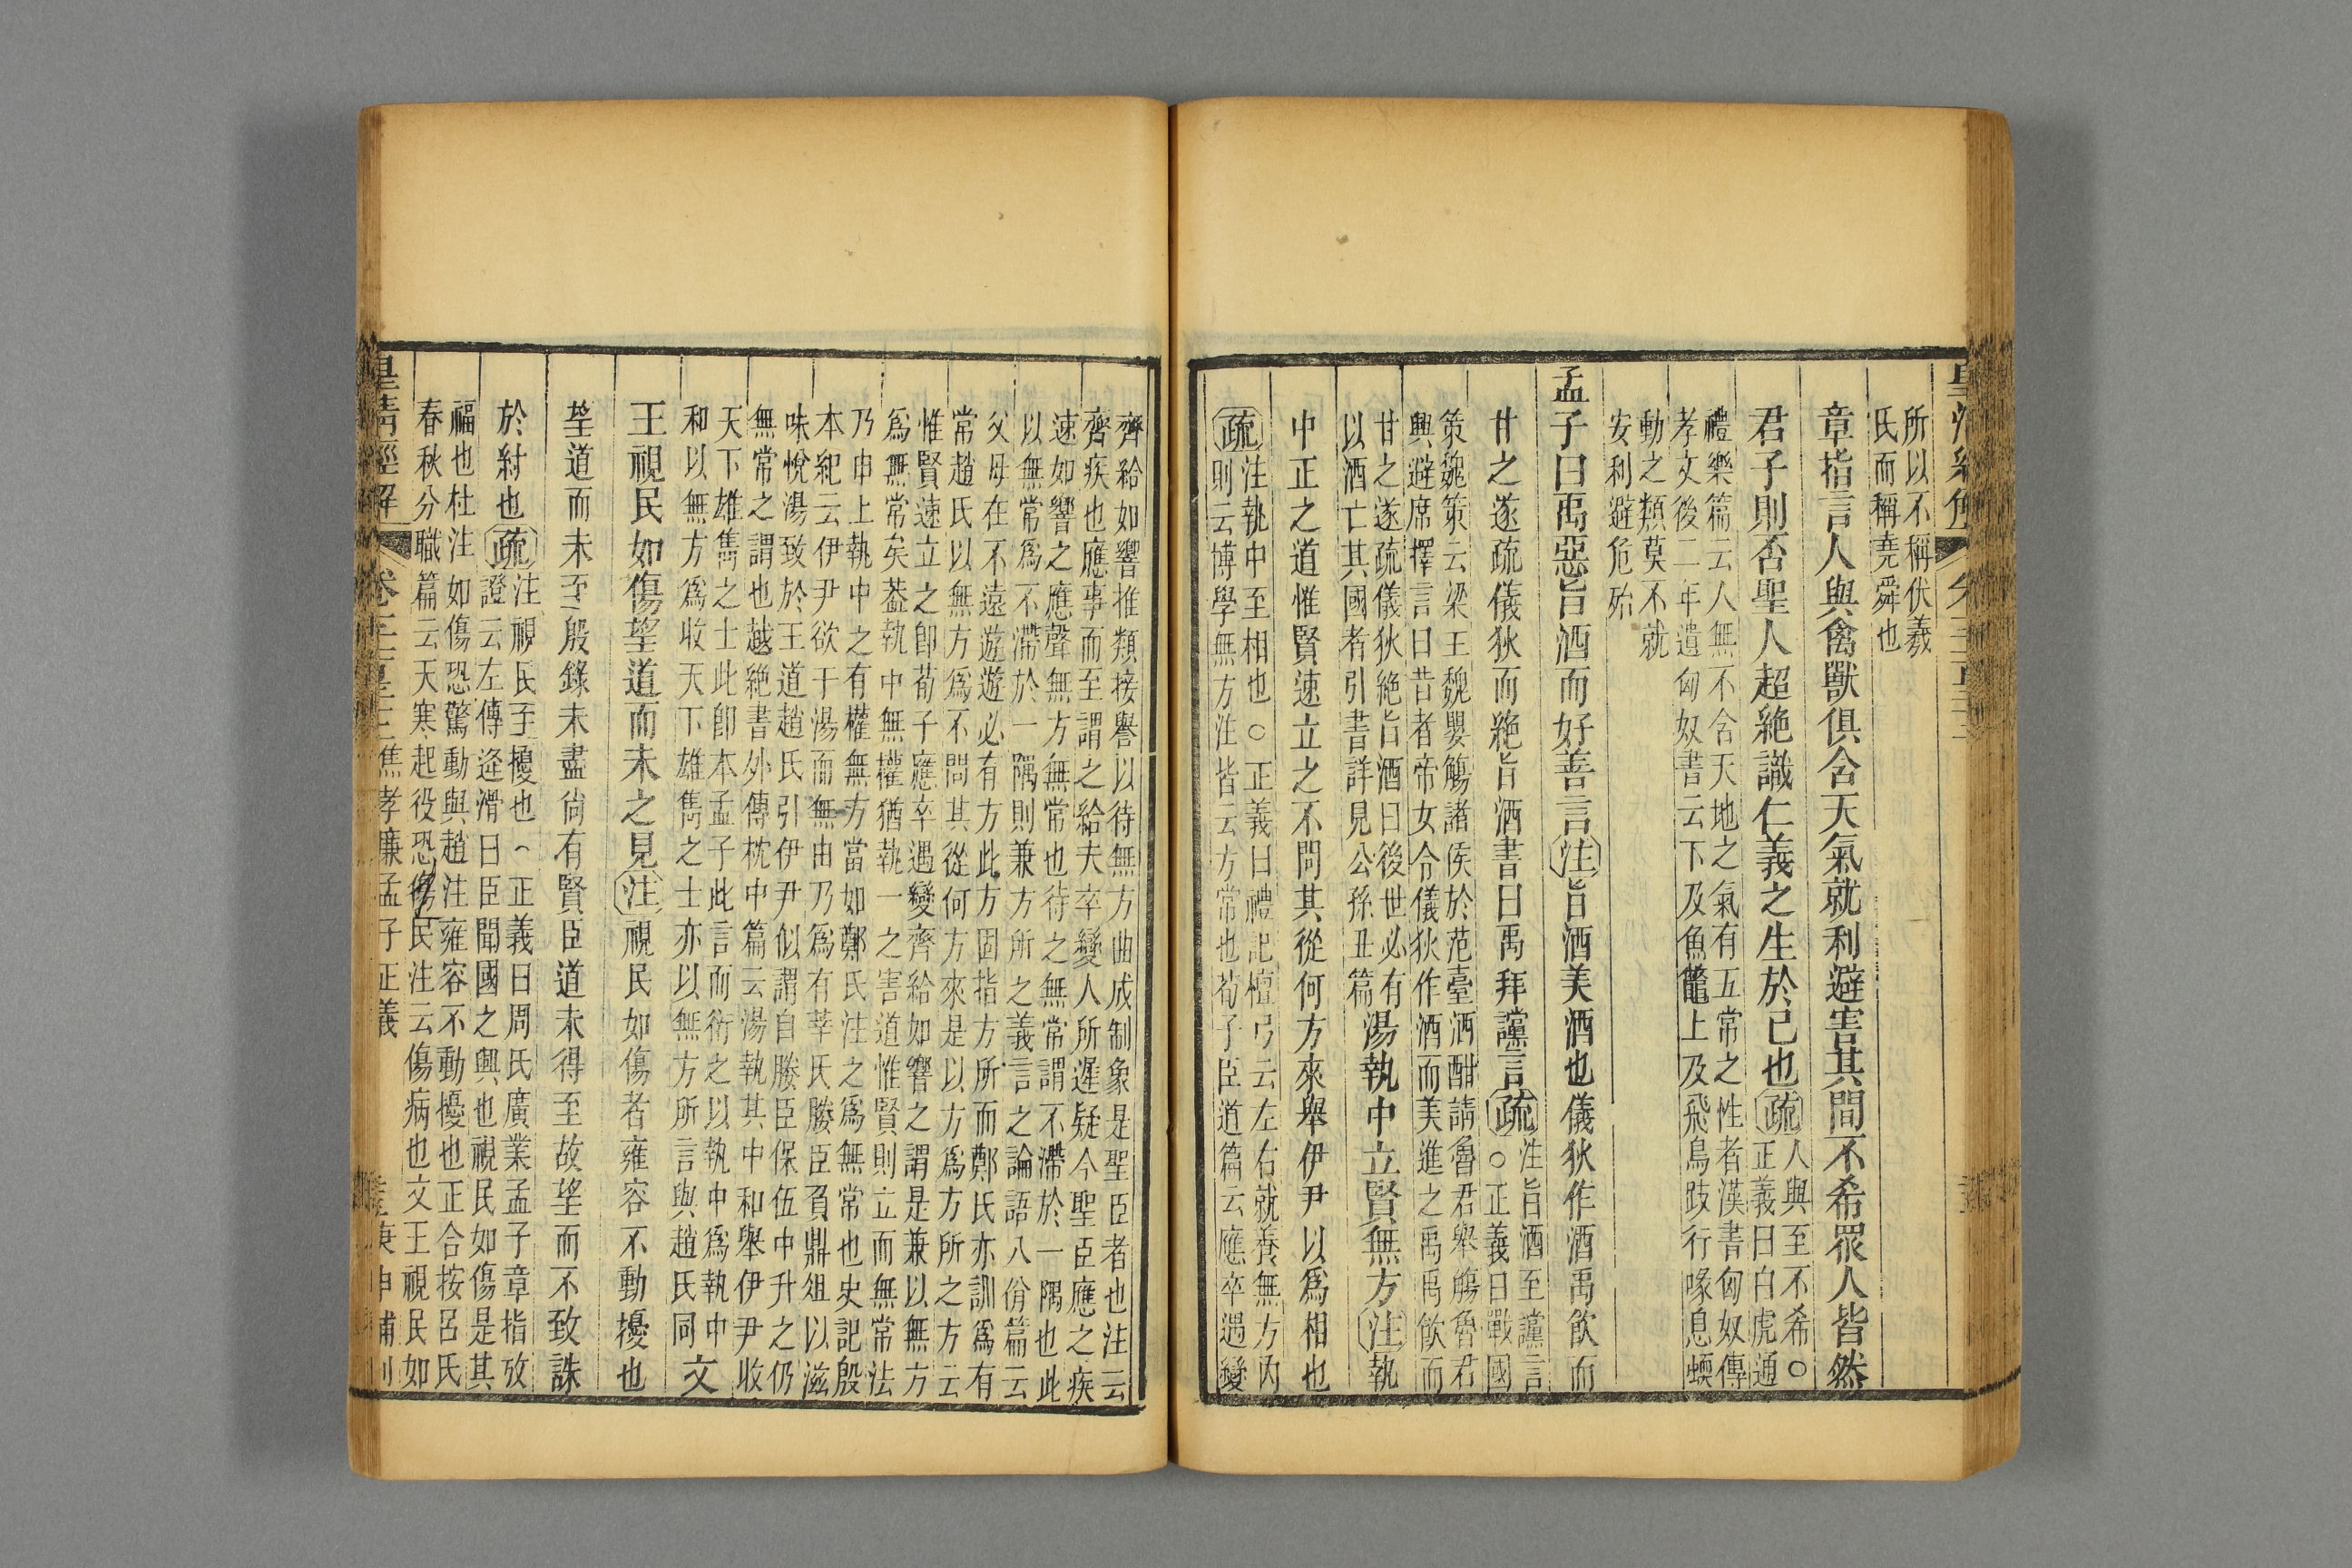 所以不稱伏羲
氏而稱堯舜也
章指言人與禽獸俱含天氣就利避害其間不希眾人皆然
君子則否聖人超絶識仁義之生於己也疏
人與至不希○
正義曰白虎通
禮樂篇云人無不含天地之氣有五常之性者漢書匈奴傳
孝文後二年遺匈奴書云下及魚鼈上及飛鳥跂行喙息蝡
動之類莫不就
安利避危殆
孟子曰禹惡旨酒而好善言注旨酒美酒也儀狄作酒禹飲而
甘之遂疏儀狄而絶旨酒書曰禹拜讜言疏
注旨酒至讜言
○正義曰戰國
策魏策云梁王魏嬰觴諸侯於范臺酒酣請魯君舉觴魯君
興避席擇言曰昔者帝女令儀狄作酒而美進之禹禹飲而
甘之遂疏儀狄絶旨酒曰後世必有
以酒亡其國者引書詳見公孫丑篇
湯執中立賢無方注執
中正之道惟賢速立之不問其從何方來舉伊尹以爲相也
疏
注執中至相也○正義曰禮記檀弓云左右就養無方內
則云博學無方注皆云方常也荀子臣道篇云應卒遇變
齊給如響推類接譽以待無方曲成制象是聖臣者也注云
齊疾也應事而至謂之給夫卒變人所遲疑今聖臣應之疾
速如響之應聲無方無常也待之無常謂不滯於一隅也此
以無常爲不滯於一隅則兼方所之義言之論語八佾篇云
父母在不遠遊遊必有方此方固指方所而鄭氏亦訓爲有
常趙氏以無方爲不問其從何方來是以方爲方所之方云
惟賢速立之卽荀子應卒遇變齊給如響之謂是兼以無方
爲無常矣葢執中無權猶執一之害道惟賢則立而無常法
乃申上執中之有權無方當如鄭氏注之爲無常也史記殷
本紀云伊尹欲于湯而無由乃爲有莘氏媵臣負鼎俎以滋
味悅湯致於王道趙氏引伊尹似謂自媵臣保伍中升之仍
無常之謂也越絶書外傳枕中篇云湯執其中和舉伊尹收
天下雄雋之士此卽本孟子此言而衍之以執中爲執中
和以無方爲收天下雄雋之士亦以無方所言與趙氏同
文
王視民如傷望道而未之見注視民如傷者雍容不動擾也
望道而未至殷錄未盡尙有賢臣道未得至故望而不致誅
於紂也疏
注視民至擾也○正義曰周氏廣業孟子章指攷
證云左傳逄滑曰臣聞國之興也視民如傷是其
福也杜注如傷恐驚動與趙注雍容不動擾也正合按呂氏
春秋分職篇云天寒起役恐傷民注云傷病也文王視民如
皇清經解
焦孝廉孟子正義
庚申補刊